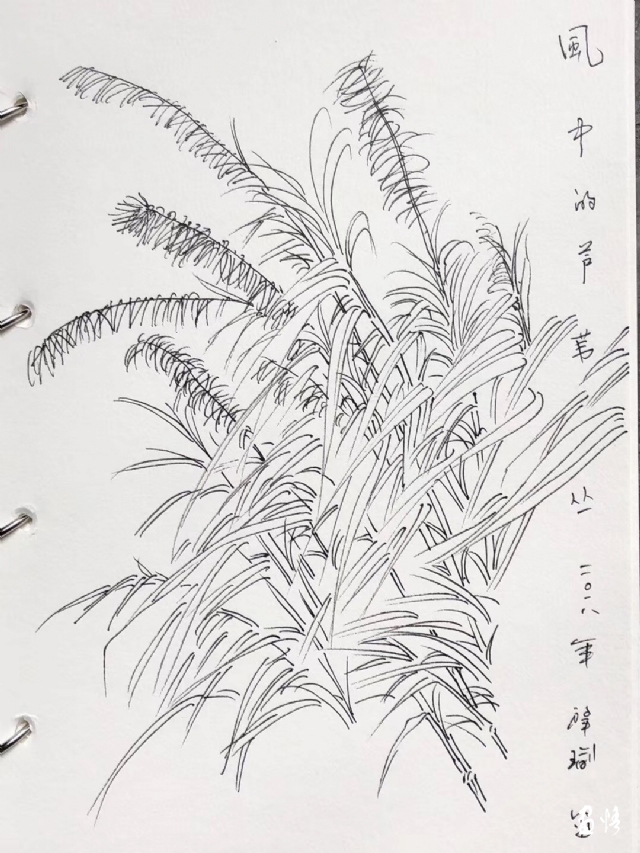 風中的芦苇丛 二〇一八年